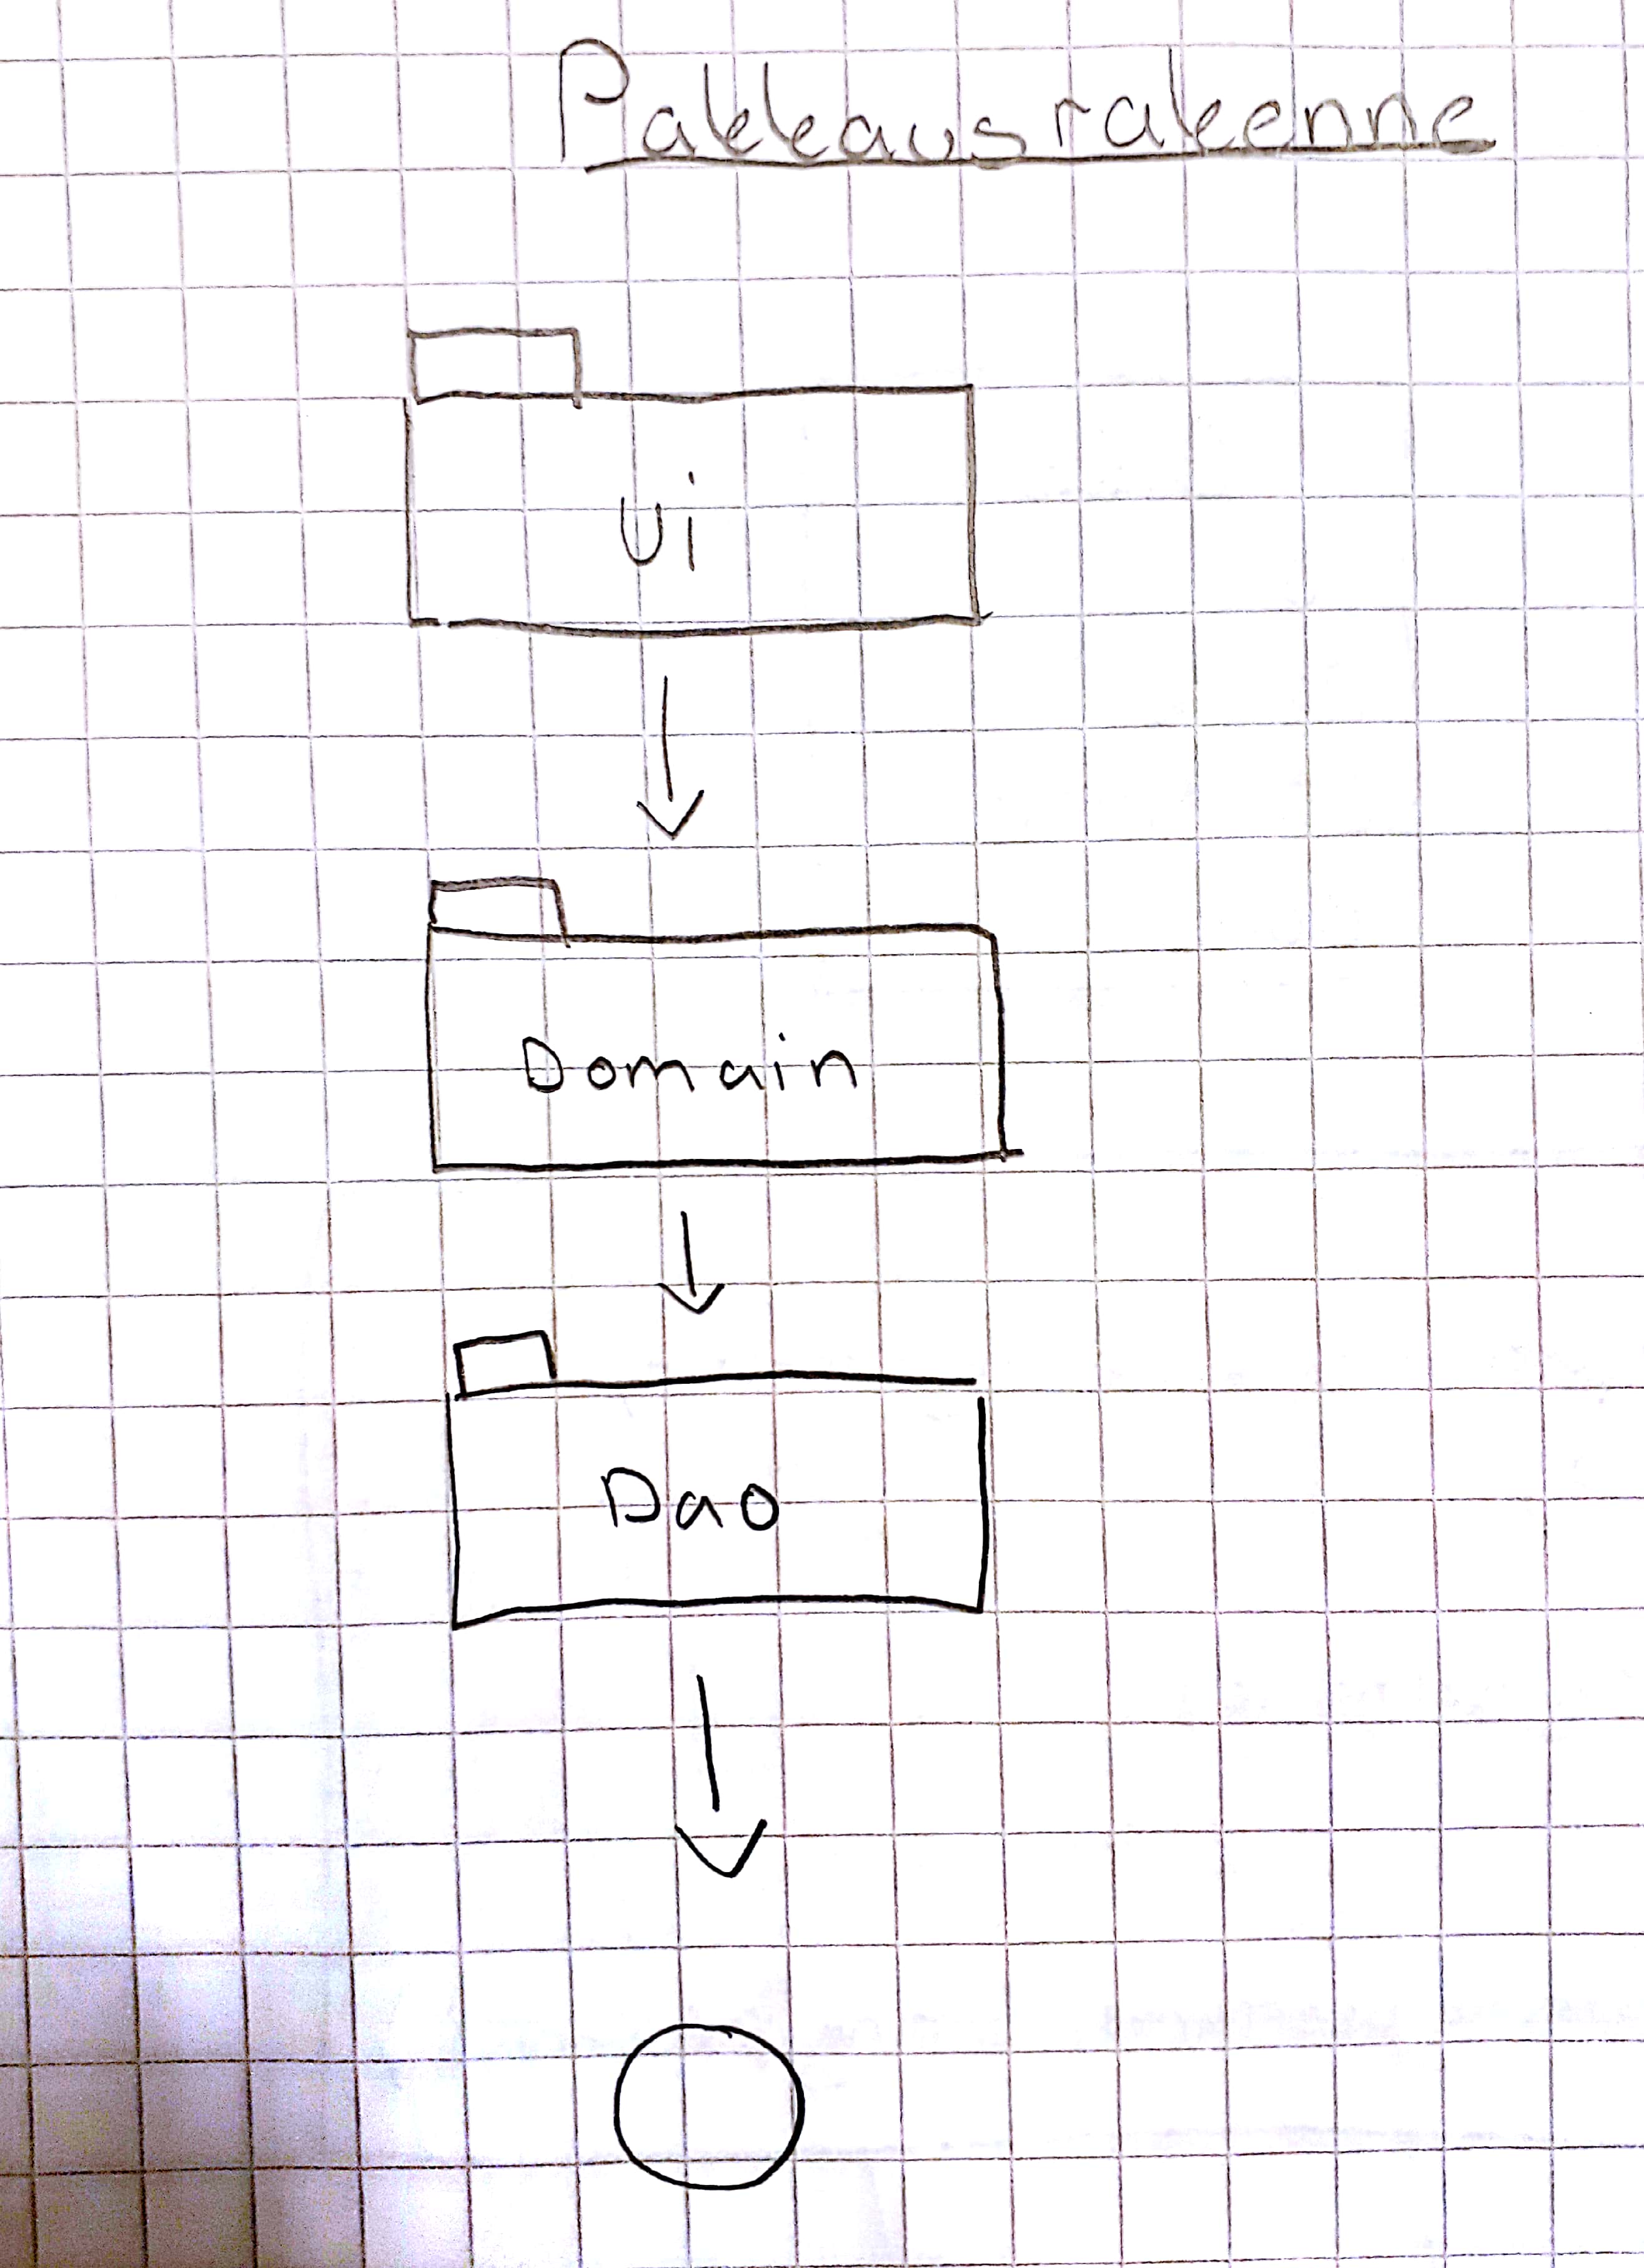 Pakkausrakenne
Ui
Domain
Dao